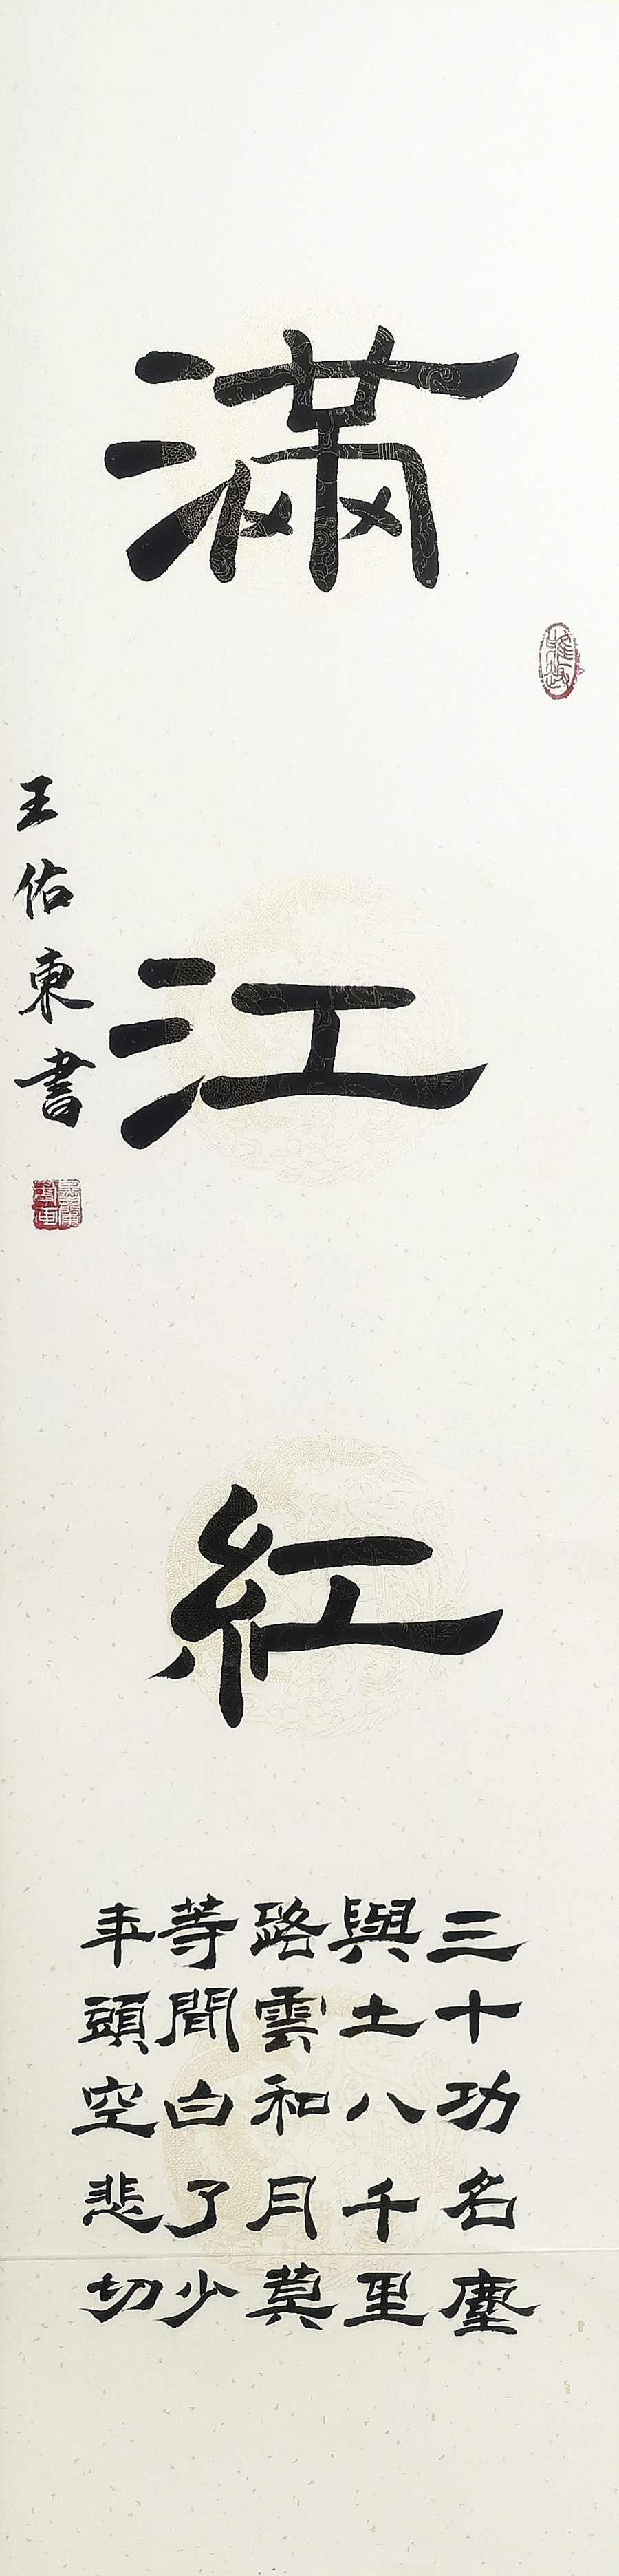 滿江紅
三十功名塵
與土八千里
路雲和月莫
等閒白了少
年頭空悲切
王佑東書